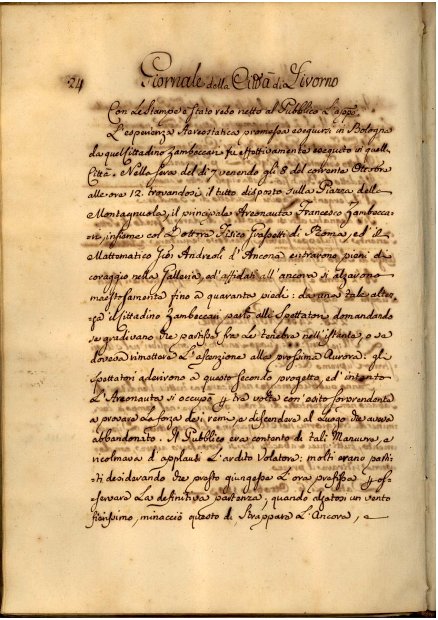 24
Giornale della Città di Livorno
Con le Stampe è stato reso noto al Pubblico
L'esperienza Aereostatica promessa eseguirsi in Bologna
da quel Cittadino Zambeccari fu effettivamente eseguita in quella
Città. Nella sera del dì 7 venendo gli 8 del corrente Ottobre
alle ore 12. trovandosi il tutto disposto sulla Piazza della
Montagnuola, il principale Areonauta Francesco Zambecca=
ri, insieme col Dottor Fisico Grassetti di Roma, ed' il
Mattematico Andreoli d'Ancona entrarono pieni di
coraggio nella Galleria, ed' affidati all'ancora si alzarono
maestosamente fino a quaranta piedi: da una tale altez=
za il Cittadino Zambeccari parlò alli Spettatori domandando
se gradivano che partisse fra le tenebre nell'istante, o se
doveva rimettere l'ascenzione alla prossima Aurora: gli
Spettatori aderirono a questo secondo progetto, ed' intanto
L'Areonauta si occupò tre volte con' esito sorprendente
a provare la forza dei remi, e discendere al Luogo che aveva
abbandonato. Il Pubblico era contento di tali Manuvre, e
ricolmava d'applausi l'ardito Volatore: molti erano parti=
ti desiderando che presto giungesse l'ora prefissa
=servare la definitiva partenza, quando alzatosi un vento
fierissimo, minacciò questo di strappare l'Ancora, e